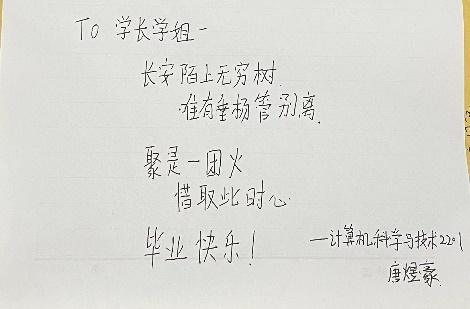 To 学长学姐-
长安陌上无穷树
唯有垂杨管别离
聚是一团火
惜取此时心
毕业快乐!
—计算机科学与技术2201
唐煜豪